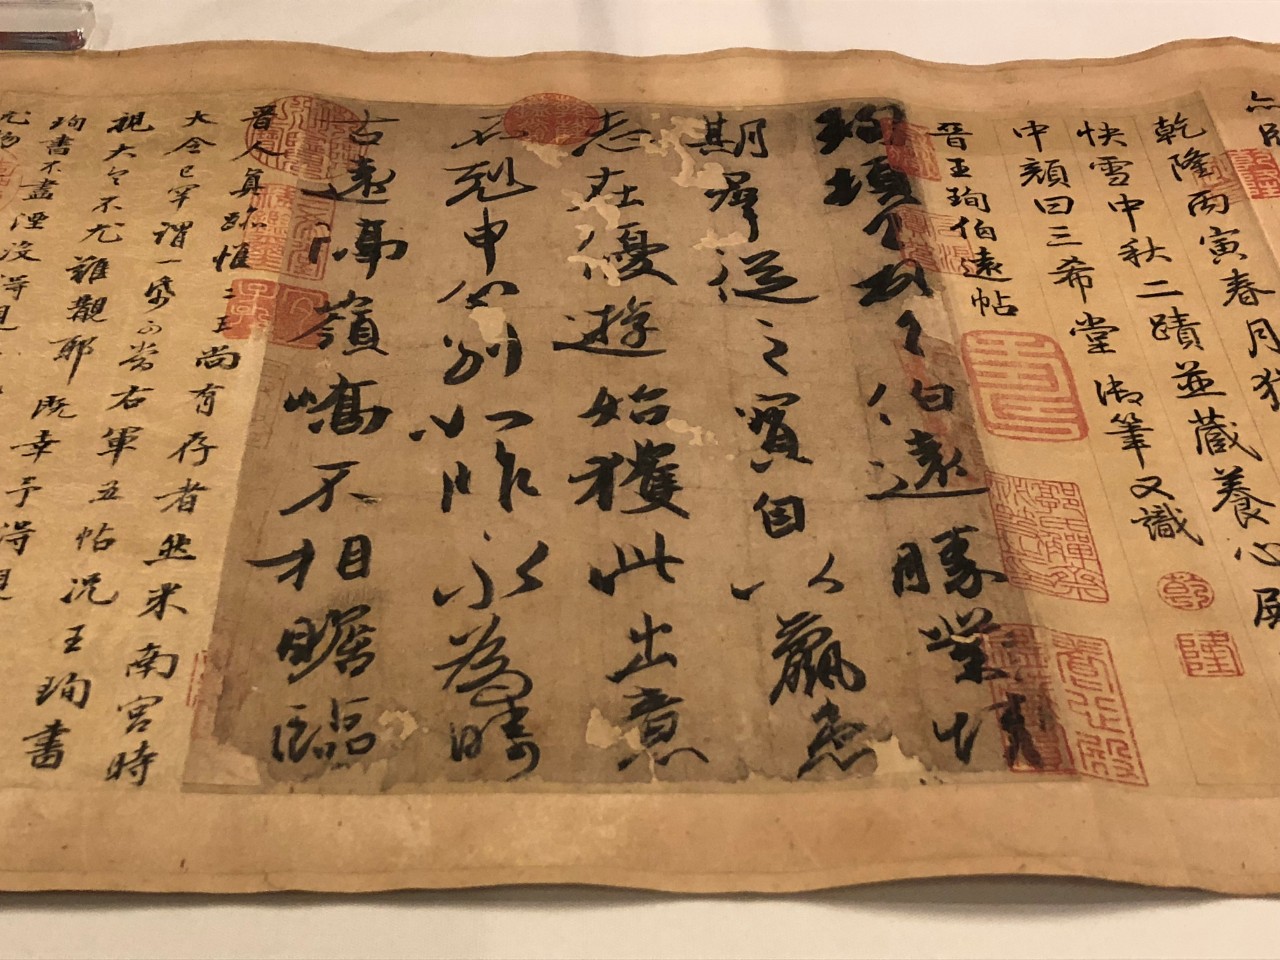 乾隆丙寅春月獲
快雪中秋二蹟並藏養心殿
中顏曰三希堂御筆又識
乾
隆
晉王珣伯遠帖
珣頓首頓首伯遠勝業情
期羣從之寶自以羸患
志在優遊始獲此出意
不剋申分別如昨永為疇
古遠隔嶺嶠不相瞻臨
晉人真跡惟二王尚有存者然米南宮時
大令已罕謂一紙可當右軍五帖況王珣書
視大令不尤難覯耶既幸予得見
珣書不盡湮沒得見
尤物